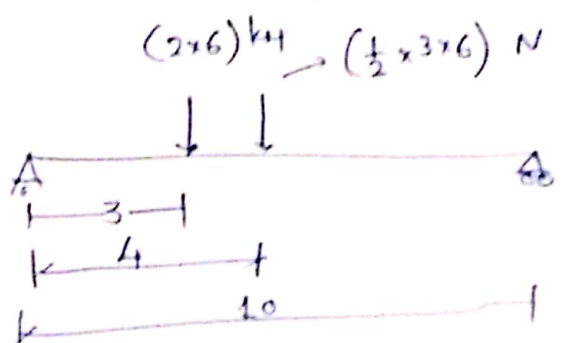 (2×6) kN (½ × 3×6) N
3
4
10